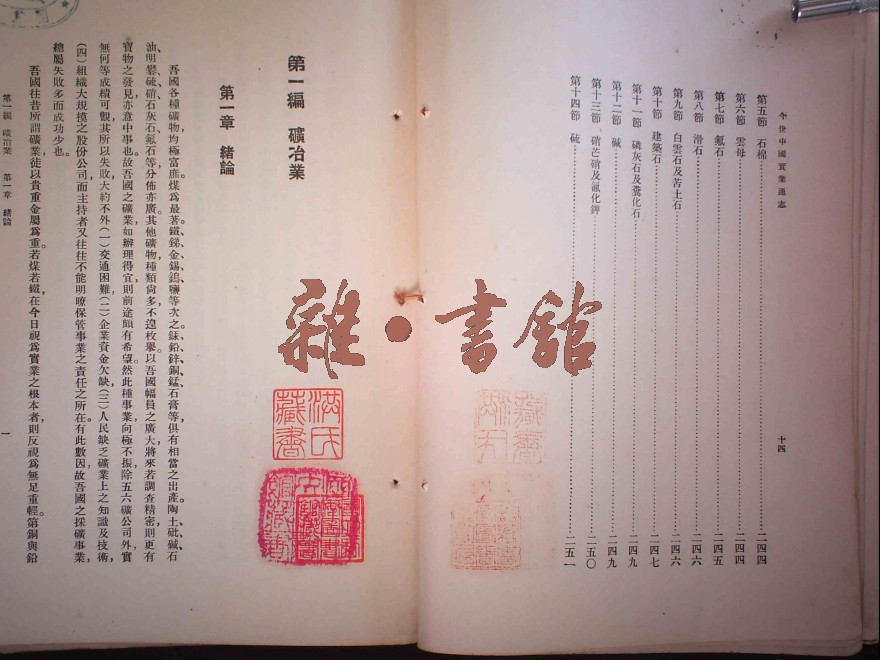 今世中國實業通志
十四
第五節 石棉 二四四
第六節 雲母 二四四
第七節 氟石 二四五
第八節 滑石 二四六
第九節 白雲石及苦土石 二四六
第十節 建築石 二四七
第十一節 磷灰石及糞化石 二四九
第十二節 碱 二四九
第十三節 硝芒硝及氯化鉀 二五〇
第十四節 硫 二五一
雜·書館
洪氏藏書
第一編 礦冶業
第一章 緒論
吾國各種礦物,均極富庶。煤爲最著。鐵、銻、金、錫、鎢、鹽等次之。銾、鉛、鋅、銅、錳、石膏等,俱有相當之出產。陶土、砒、碱、石
油、明礬、硫、硝、石灰石、氟石等,分佈亦廣。其他礦物,種類尙多,不遑枚舉。以吾國幅員之廣大,將來若調查精密,則更有
寶物之發見,亦意中事也。故吾國之礦業,如辦理得宜,則前途頗有希望。然此種事業,向極不振,除五六礦公司外,實
無何等成績可觀。其所以失敗,大約不外(一)交通困難,(二)企業資金欠缺,(三)人民缺乏礦業上之知識及技術,
(四)組織大規模之股份公司,而主持者又往往不能明瞭保管事業之責任之所在。有此數因,故吾國之採礦事業,
總屬失敗多而成功少也。
吾國往昔所謂礦業,徒以貴重金屬爲重。若煤若鐵,在今日視爲實業之根本者,則反視爲無足重輕。第銅與鉛
第一編 礦冶業 第一章 緒論
一